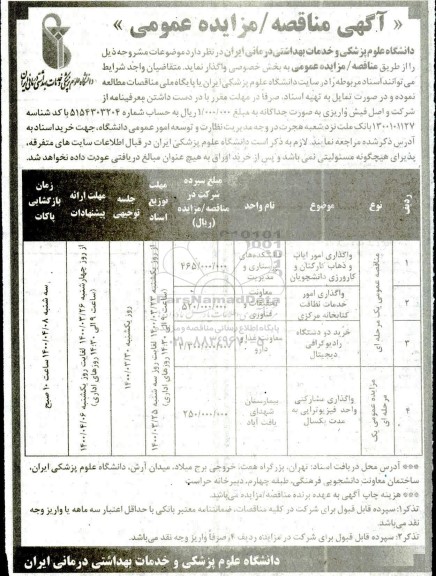 « آگهی مناقصه/مزایده عمومی »
دانشگاه علوم پزشکی و خدمات بهداشتی درمانی ایران در نظر دارد موضوعات مشروحه ذیل
را از طریق مناقصه/ مزایده عمومی به بخش خصوصی واگذار نماید. متقاضیان واجد شرایط
می‌توانند اسناد مربوطه را در سایت دانشگاه علوم پزشکی ایران یا پایگاه ملی مناقصات مطالعه
نموده و در صورت تمایل به تهیه اسناد، صرفاً در مهلت مقرر با در دست داشتن معرفینامه از
شرکت و اصل فیش واریزی به صورت جداگانه به مبلغ ۱/۰۰۰/۰۰۰ ریال به حساب شماره ۵۱۵۴۳۰۳۲۰۴ با کد شناسه
۱۳۰۰۱۰۱۱۲۷ بانک ملت نزد شعبه هجرت در وجه مدیریت نظارت و توسعه امور عمومی دانشگاه، جهت خرید اسناد به
آدرس ذکر شده مراجعه نمایند. لازم به ذکر است دانشگاه علوم پزشکی ایران در قبال اطلاعات سایت های متفرقه،
پذیرای هیچگونه مسئولیتی نمی باشد و پس از خرید اوراق به هیچ عنوان مبالغ دریافتی عودت داده نخواهد شد.
ردیف
نوع
موضوع
نام واحد
مبلغ سپرده شرکت در مناقصه/مزایده (ریال)
مهلت توزیع اسناد
جلسه توجیهی
مهلت ارائه پیشنهادات
زمان بازگشایی پاکات
مناقصه عمومی یک مرحله ای
۱
واگذاری امور ایاب و ذهاب کارکنان و کارورزی دانشجویان
دانشکده‌های پرستاری و مدیریت
۴۶۵/۰۰۰/۰۰۰
۲
واگذاری امور خدمات نظافت کتابخانه مرکزی
معاونت تحقیقات و فناوری
۵۲۰/۰۰۰/۰۰۰
۳
خرید دو دستگاه رادیوگرافی دیجیتال
معاونت غذا و دارو
مزایده عمومی یک مرحله ای
۴
واگذاری مشارکتی واحد فیزیوتراپی به مدت یکسال
بیمارستان شهدای یافت آباد
۲۵۰/۰۰۰/۰۰۰
از روز یکشنبه ۱۴۰۰/۰۳/۲۳ لغایت روز سه شنبه ۱۴۰۰/۰۳/۲۵ (ساعت ۹ الی ۱۴:۳۰ روزهای اداری)
روز یکشنبه ۱۴۰۰/۰۳/۳۰
از روز چهارشنبه ۱۴۰۰/۰۳/۲۶ لغایت روز یکشنبه ۱۴۰۰/۰۴/۰۶ (ساعت ۹ الی ۱۴:۳۰ روزهای اداری)
سه شنبه ۱۴۰۰/۰۴/۰۸ ساعت ۱۰ صبح
پایگاه اطلاع رسانی مناقصه و مزایده
*** آدرس محل دریافت اسناد: تهران، بزرگراه همت، خروجی برج میلاد، میدان آرش، دانشگاه علوم پزشکی ایران،
ساختمان معاونت دانشجویی فرهنگی، طبقه چهارم، دبیرخانه حراست
*** هزینه چاپ آگهی به عهده برنده مناقصه/مزایده می‌باشد.
تذکر۱: سپرده قابل قبول برای شرکت در کلیه مناقصات، ضمانتنامه معتبر بانکی با حداقل اعتبار سه ماهه یا واریز وجه
نقد می‌باشد.
تذکر۲: سپرده قابل قبول برای شرکت در مزایده ردیف ۴، صرفاً واریز وجه نقد می‌باشد.
دانشگاه علوم پزشکی و خدمات بهداشتی درمانی ایران